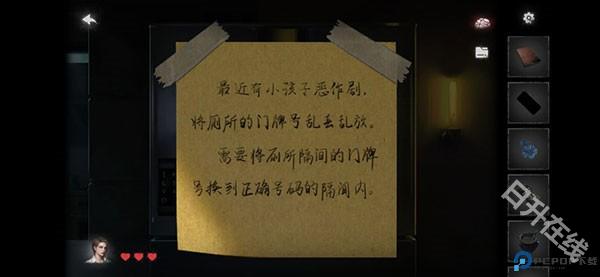 最近有小孩子恶作剧,
将厕所的门牌号乱丢乱放。
需要将厕所隔间的门牌
号换到正确号码的隔间内。
日升在线
PCPOP下载